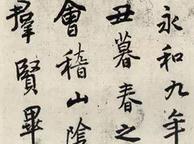 永和九年
丑暮春之
會稽山陰
羣賢畢